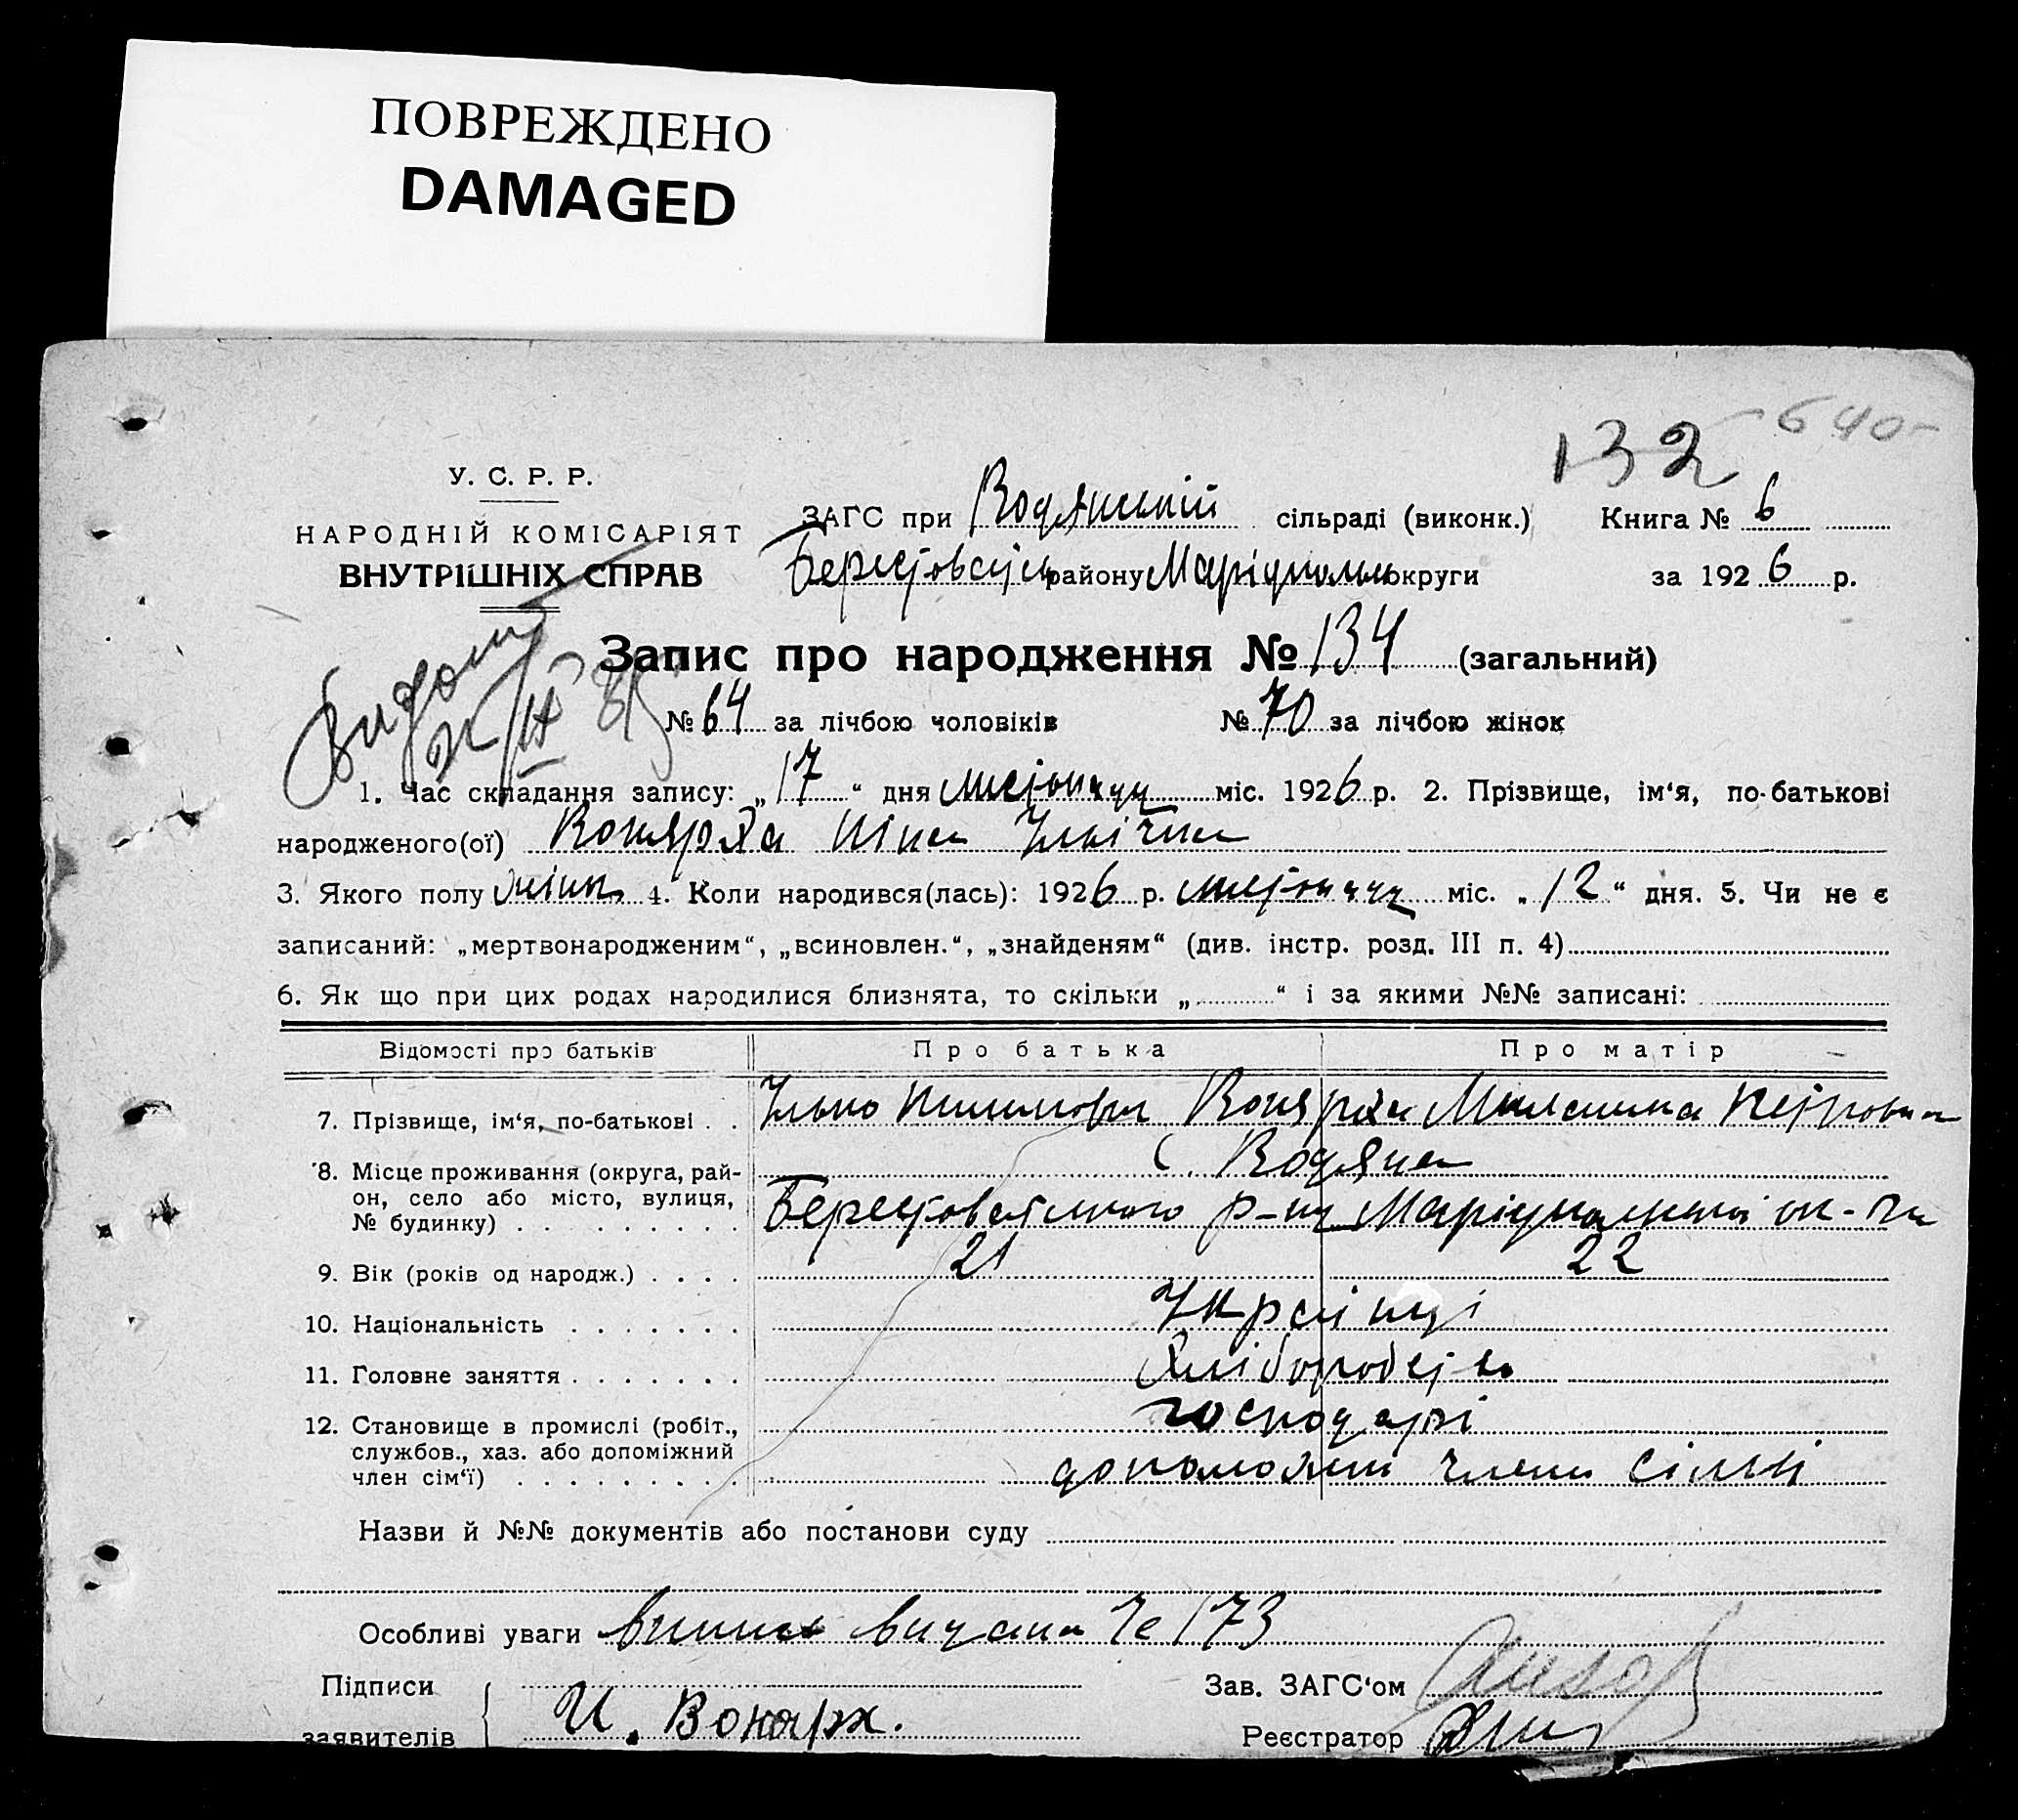 ПОВРЕЖДЕНО
DAMAGED
132 640-
У. С. Р. Р.
НАРОДНІЙ КОМІСАРІЯТ
ВНУТРІШНІХ СПРАВ
ЗАГС при Водянській сільраді (виконк.) Книга № 6
району округи за 1926 р.
Запис про народження № 134 (загальний)
№ 64 за лічбою чоловіків № 70 за лічбою жінок
1. Час складання запису: „17“ дня листопаду міс. 1926 р. 2. Прізвище, ім'я, по-батькові
народженого(ої) Вокярха Ніна Ільічна
3. Якого полу жіноч. 4. Коли народився(лась): 1926 р. листопаду міс. „12“ дня. 5. Чи не є
записаний: „мертвонародженим“, „всиновлен.“, „знайденям“ (див. інстр. розд. III п. 4)
6. Як що при цих родах народилися близнята, то скільки „ “ і за якими №№ записані:
Відомості про батьків Про батька Про матір
7. Прізвище, ім'я, по-батькові . . Ілько Вокярха Меланина Петровна
8. Місце проживання (округа, рай- с. Водяна
он, село або місто, вулиця,
№ будинку) . . . . . . . . Берестоватського р-ну Маріупольської ок-ги
9. Вік (років од народж.) . . . . 21 22
10. Національність . . . . . . . Українці
11. Головне заняття . . . . . . . Хліборобство
12. Становище в промислі (робіт., господарі
службов., хаз. або допоміжний
член сім'ї) . . . . . . . . . допоможні члени сім'ї
Назви й №№ документів або постанови суду
Особливі уваги видана № 173
Підписи Зав. ЗАГС'ом
заявителів И. Вокярх. Реєстратор